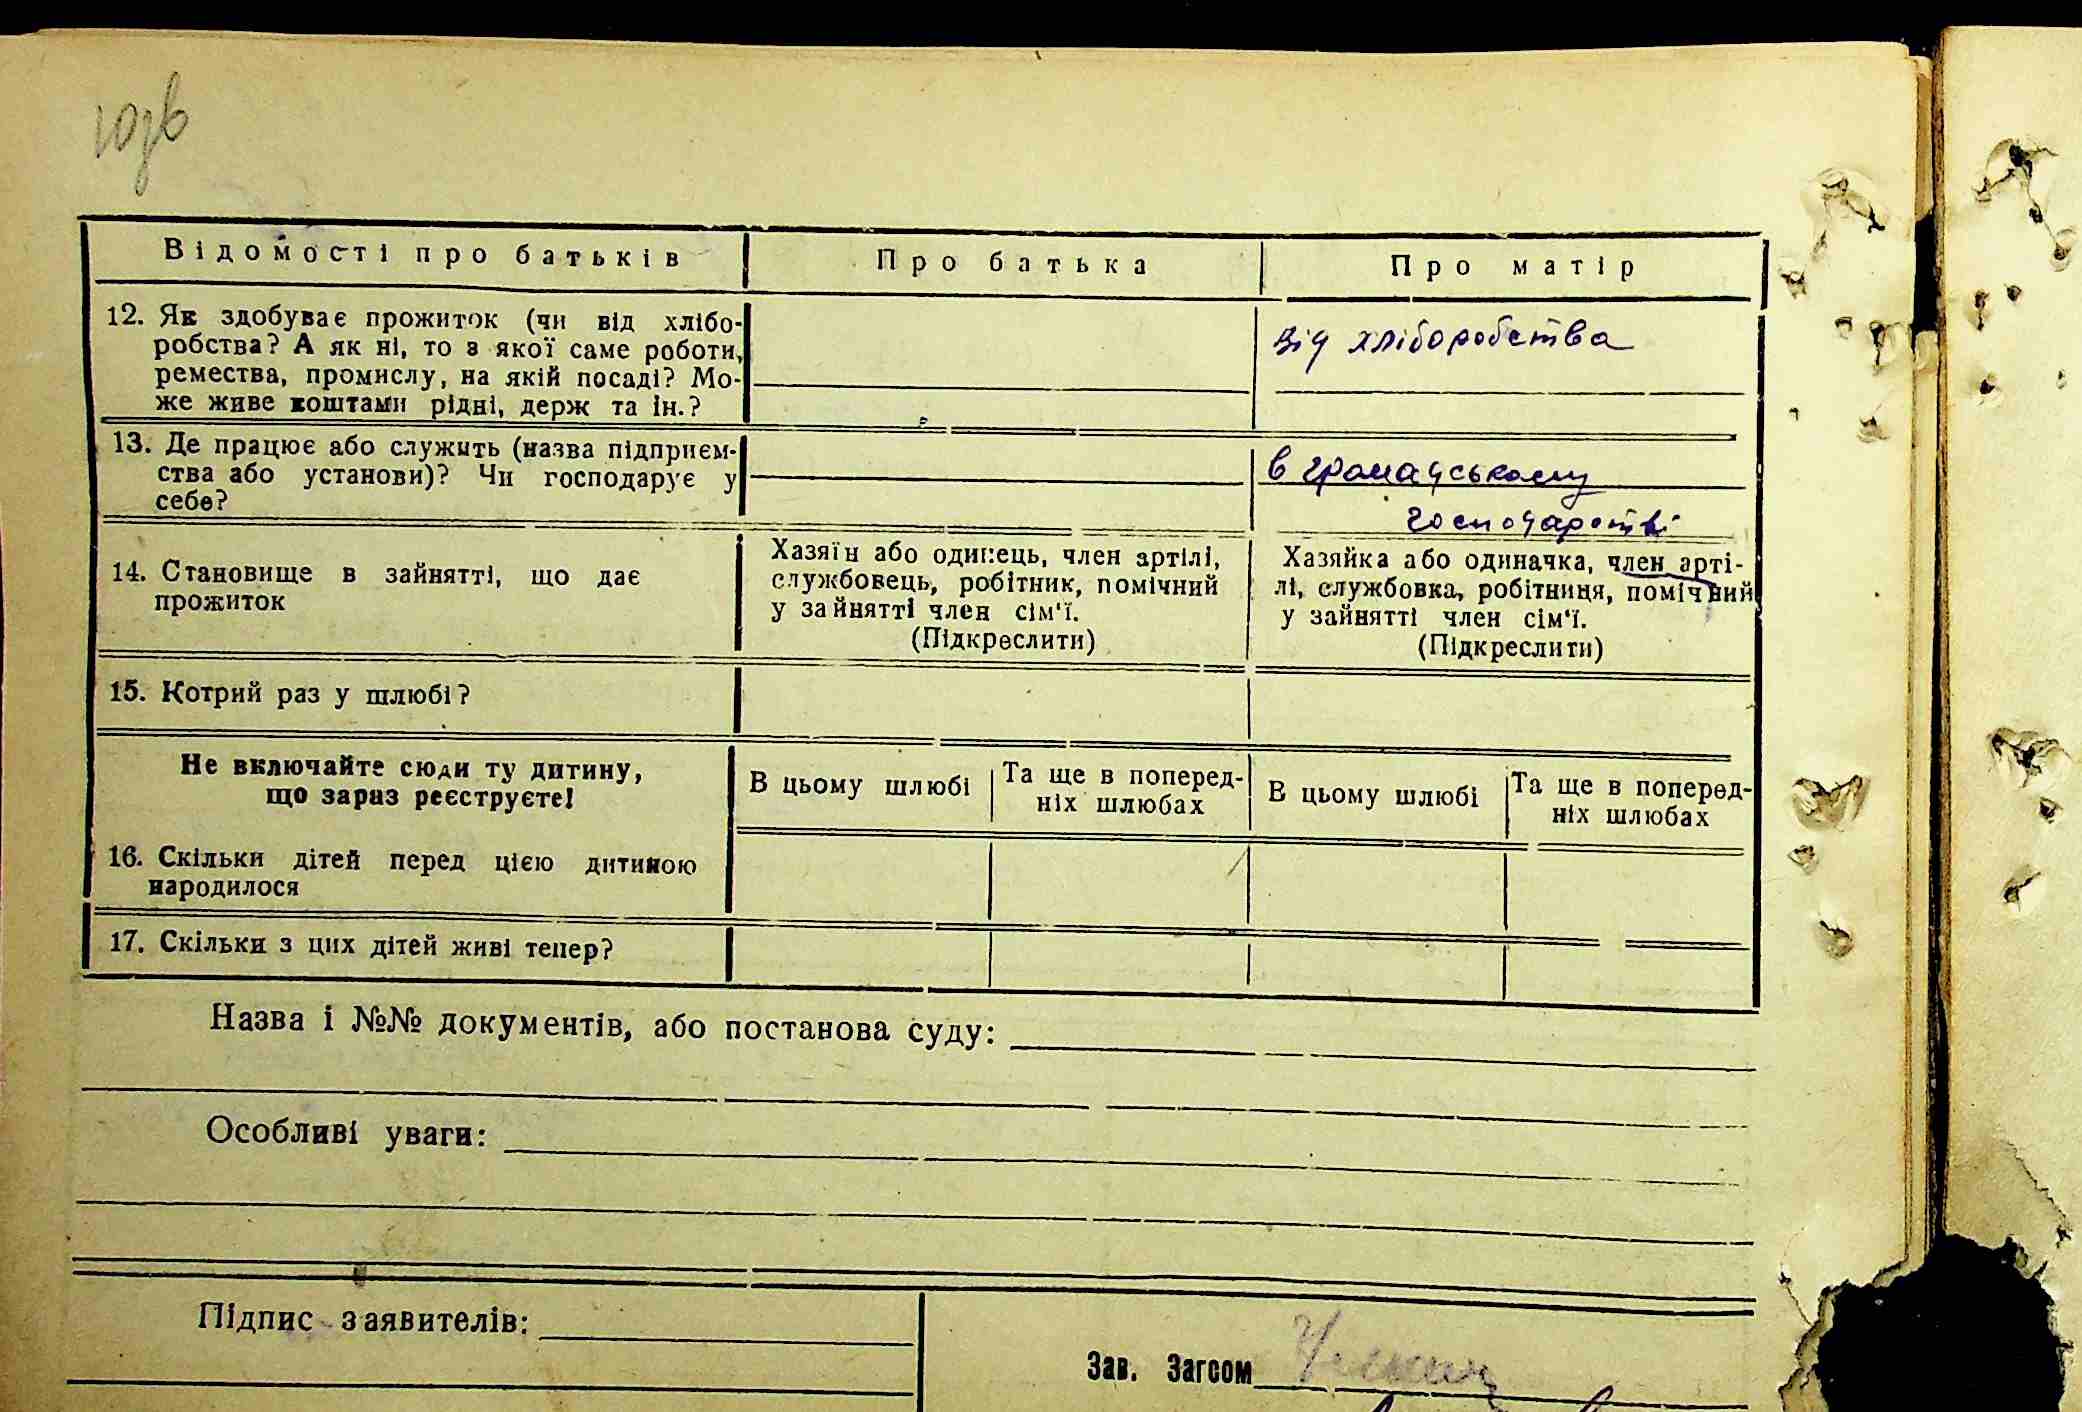 Відомості про батьків
Про батька
Про матір
12. Як здобуває прожиток (чи від хлібо-
робства? А як ні, то з якої саме роботи,
ремества, промислу, на якій посаді? Мо-
же живе коштами рідні, держ та ін.?
від хліборобства
13. Де працює або служить (назва підприєм-
ства або установи)? Чи господарує у
себе?
в громадському
господарстві
14. Становище в зайнятті, що дає
прожиток
Хазяїн або одинець, член артілі,
службовець, робітник, помічний
у зайнятті член сім'ї.
(Підкреслити)
Хазяйка або одиначка, член арті-
лі, службовка, робітниця, помічний
у зайнятті член сім'ї.
(Підкреслити)
15. Котрий раз у шлюбі?
Не включайте сюди ту дитину,
що зараз реєструєте!
В цьому шлюбі
Та ще в поперед-
ніх шлюбах
В цьому шлюбі
Та ще в поперед-
ніх шлюбах
16. Скільки дітей перед цією дитиною
народилося
17. Скільки з цих дітей живі тепер?
Назва і №№ документів, або постанова суду:
Особливі уваги:
Підпис заявителів:
Зав. Загсом